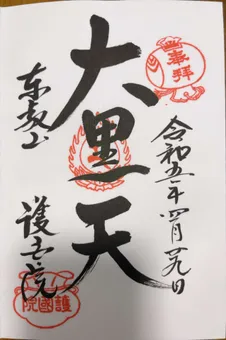 奉拝
令和五年四月廿九日
大黒天
東叡山
護国院
護國院